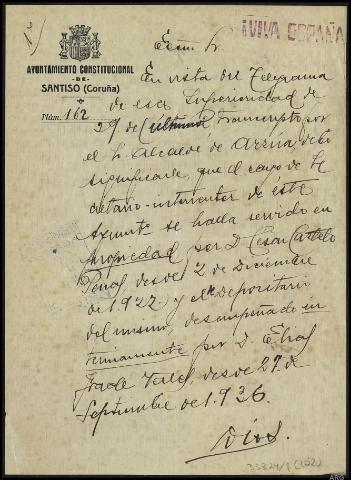 ¡VIVA ESPAÑA
Excmo Sr.
AYUNTAMIENTO CONSTITUCIONAL
-DE-
SANTISO (Coruña)
Núm. 162
En vista del Telegrama
de esa Superioridad de
29 de (último) transcripto por
el Sr. Alcalde de Arzúa, debo
significarle, que el cargo de Se
cretario-interventor de éste
Ayunto se halla servido en
propiedad por D. Cesar Castelo
desde 2 de Diciembre
de 1.922 y el de Depositario
del mismo, desempeñado in
terinamente por D. Elías
desde 27 de
Septiembre de 1.936.
Dios.